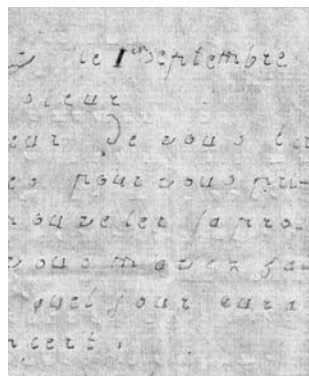 le 1er Septembre
sieur
eur Je vous
es pour vous pri-
nouveler la pro-
vous mavez
quel jour aura
ncert.